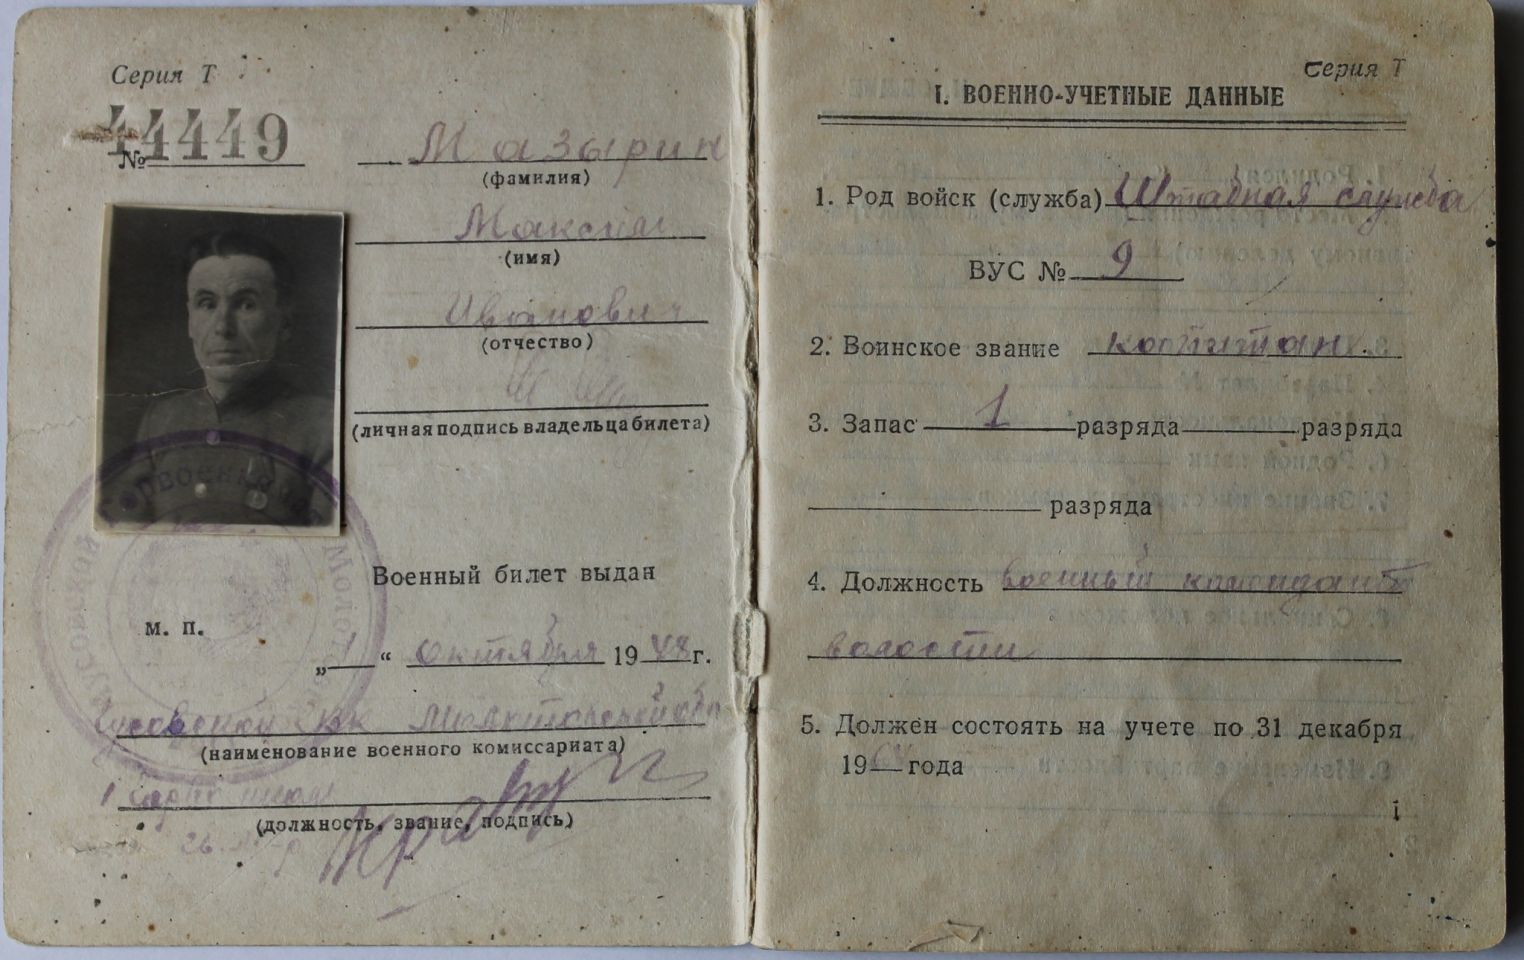 Серия Т
44449
№
Мазырин
(фамилия)
Максим
(имя)
Иванович
(отчество)
(личная подпись владельца билета)
Военный билет выдан
м. п.
„1“ октября 1948 г.
Чусовской ГВК Молотовской обл
(наименование военного комиссариата)
(должность, звание, подпись)
Серия Т
I. ВОЕННО-УЧЕТНЫЕ ДАННЫЕ
1. Род войск (служба) Штабная служба
ВУС № 9
2. Воинское звание капитан
3. Запас 1 разряда разряда
разряда
4. Должность военный комендант
волости
5. Должен состоять на учете по 31 декабря
19 года
1